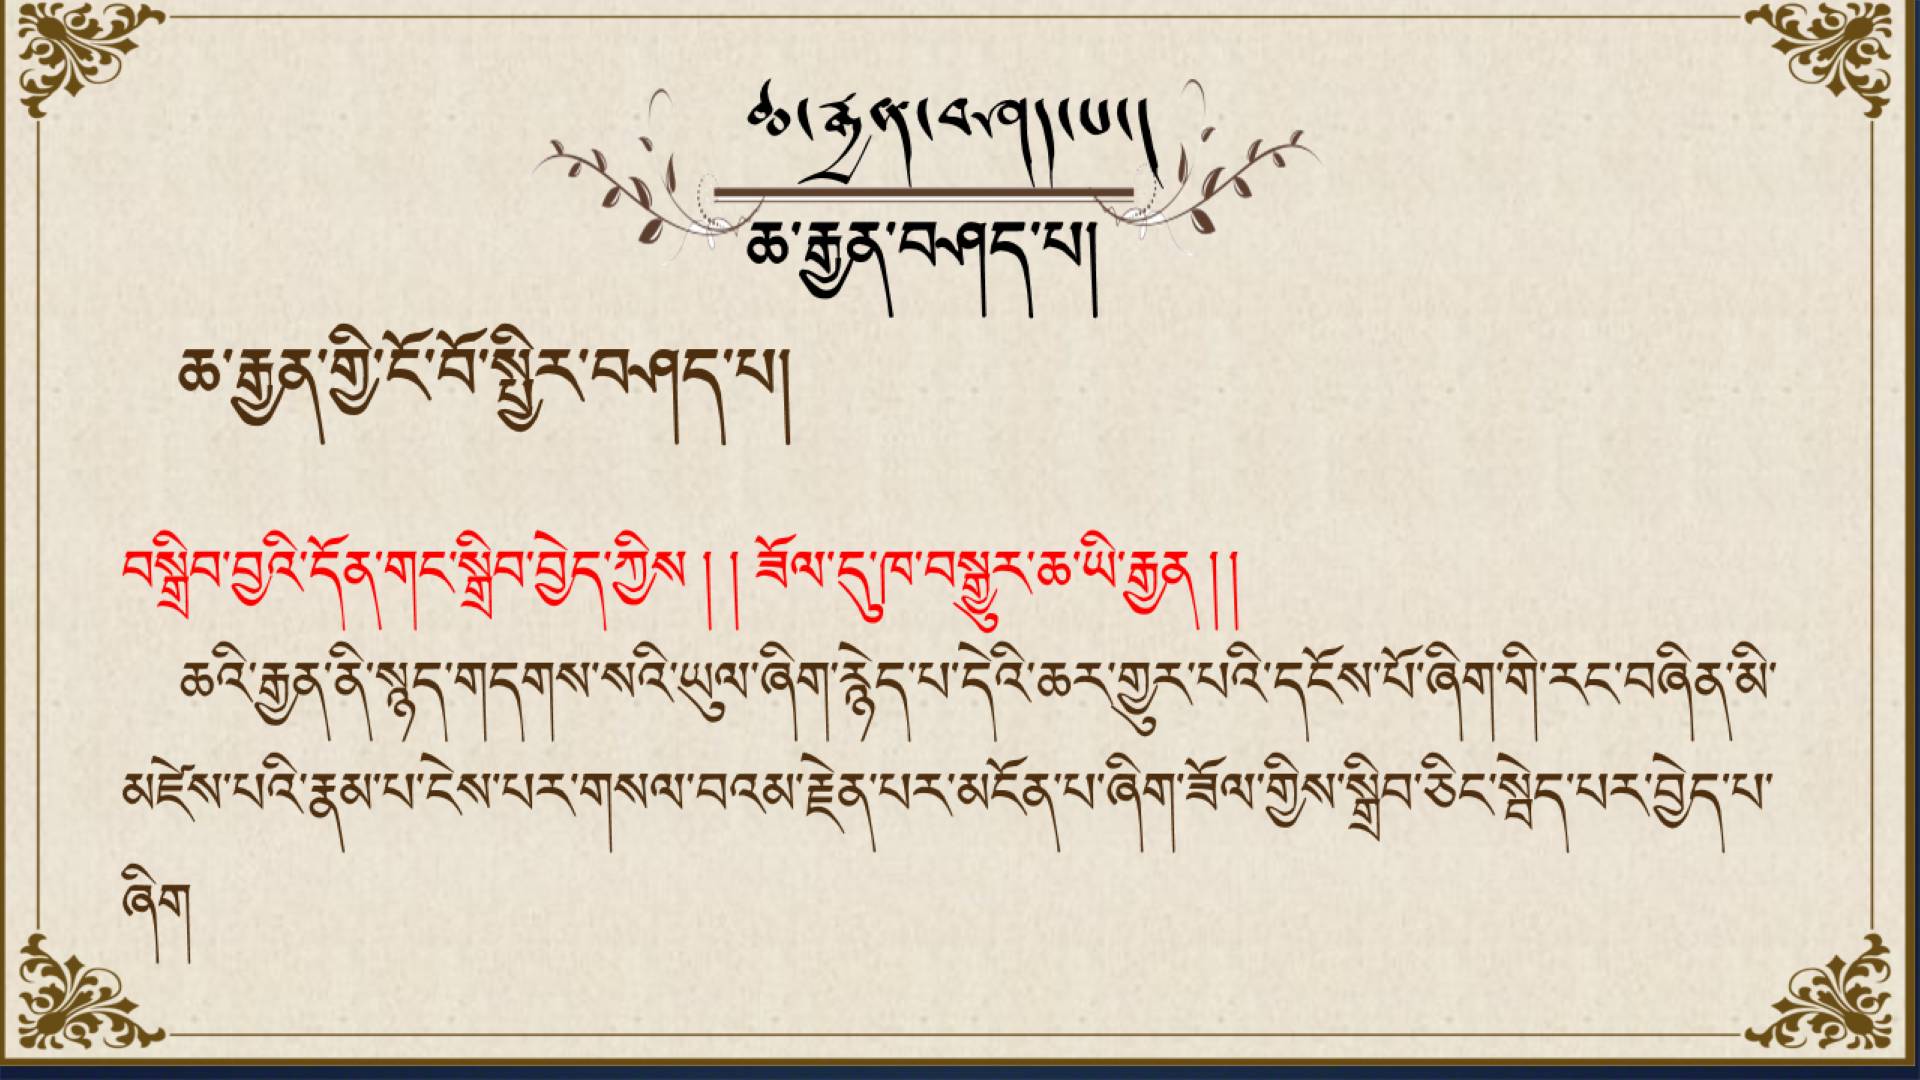 ཆ་རྒྱན་བཤད་པ།
ཆ་རྒྱན་བཤད་པ།
ཆ་རྒྱན་གྱི་ངོ་བོ་སྤྱིར་བཤད་པ།
བསྒྲིབ་བྱའི་དོན་གང་སྒྲིབ་བྱེད་ཀྱིས།། ཟོལ་དུ་ཁ་བསྒྱུར་ཆ་ཡི་རྒྱན།།
ཆའི་རྒྱན་ནི་སྙད་གདགས་སའི་ཡུལ་ཞིག་རྙེད་པ་དེའི་ཆར་གྱུར་པའི་དངོས་པོ་ཞིག་གི་རང་བཞིན་མི་
མཛེས་པའི་རྣམ་པ་ངེས་པར་གསལ་བའམ་རྗེན་པར་མངོན་པ་ཞིག་ཟོལ་གྱིས་སྒྲིབ་ཅིང་སྦེད་པར་བྱེད་པ་
ཞིག